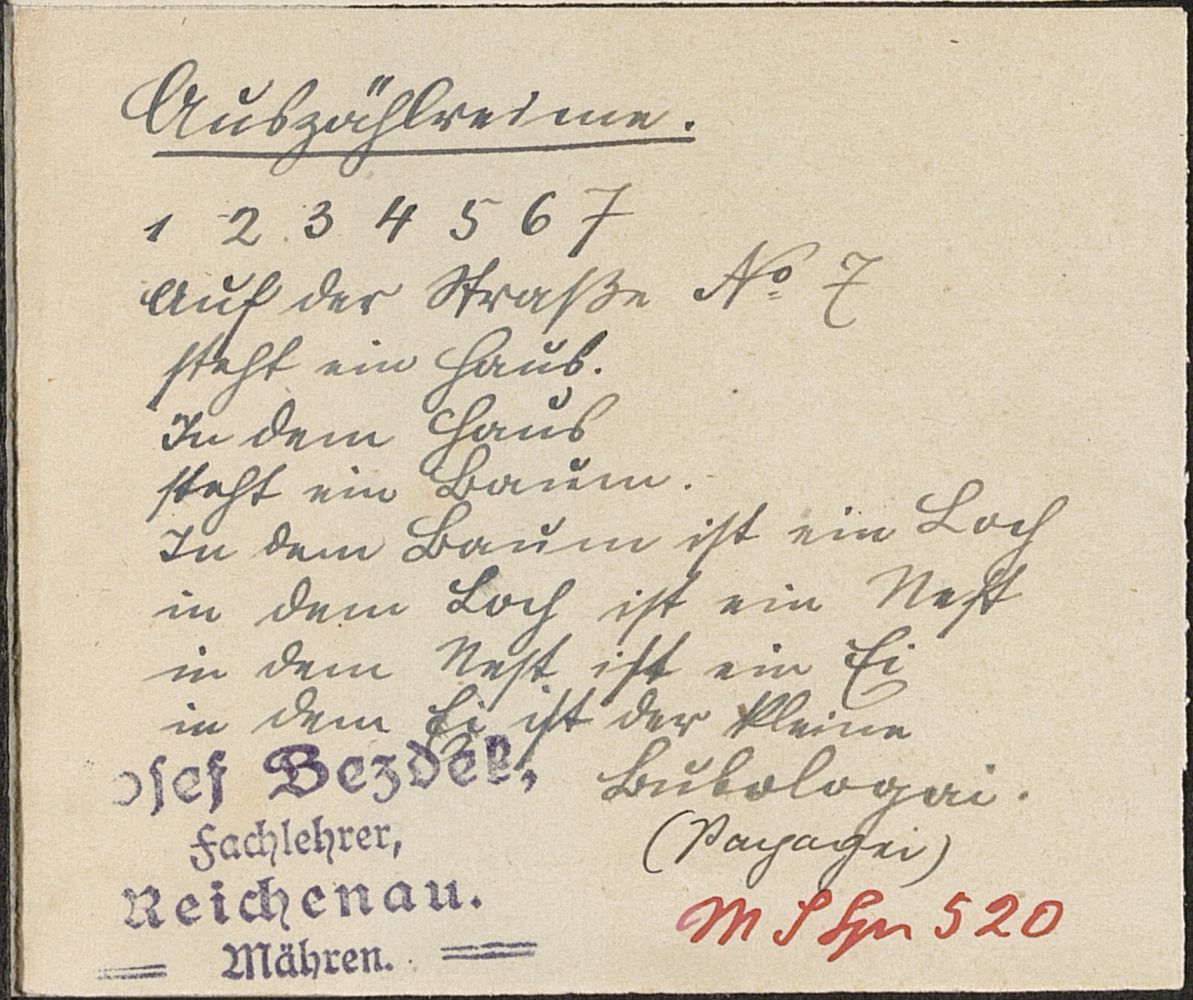 Auszählreime.
1 2 3 4 5 6 7
Auf der Straße No 7
steht ein Haus.
In dem Haus
steht ein Baum.
In dem Baum ist ein Loch
in dem Loch ist ein Nest
in dem Nest ist ein Ei
in dem Ei ist der kleine
Bubologai.
(Papagei)
osef Bezdek,
Fachlehrer,
Reichenau.
Mähren.
M S 520